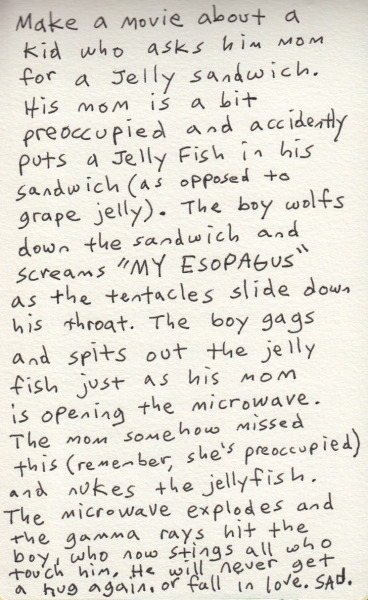 Make a movie about a
kid who asks him mom
for a Jelly sandwich.
His mom is a bit
preoccupied and accidently
puts a Jelly Fish in his
sandwich (as opposed to
grape jelly). The boy wolfs
down the sandwich and
screams "MY ESOPAGUS"
as the tentacles slide down
his throat. The boy gags
and spits out the jelly
fish just as his mom
is opening the microwave.
The mom somehow missed
this (remember, she's preoccupied)
and nukes the jellyfish.
The microwave explodes and
the gamma rays hit the
boy, who now stings all who
touch him. He will never get
a hug again, or fall in love. SAD.